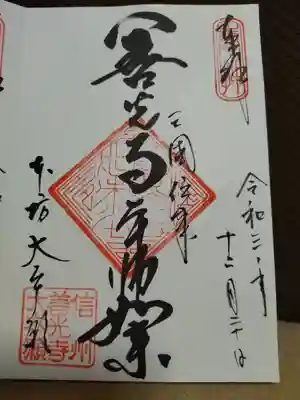 奉拝
令和三年
十二月二十日
三國傳来
善光寺本師如来
本坊 大本願
信州
善光寺
大本願